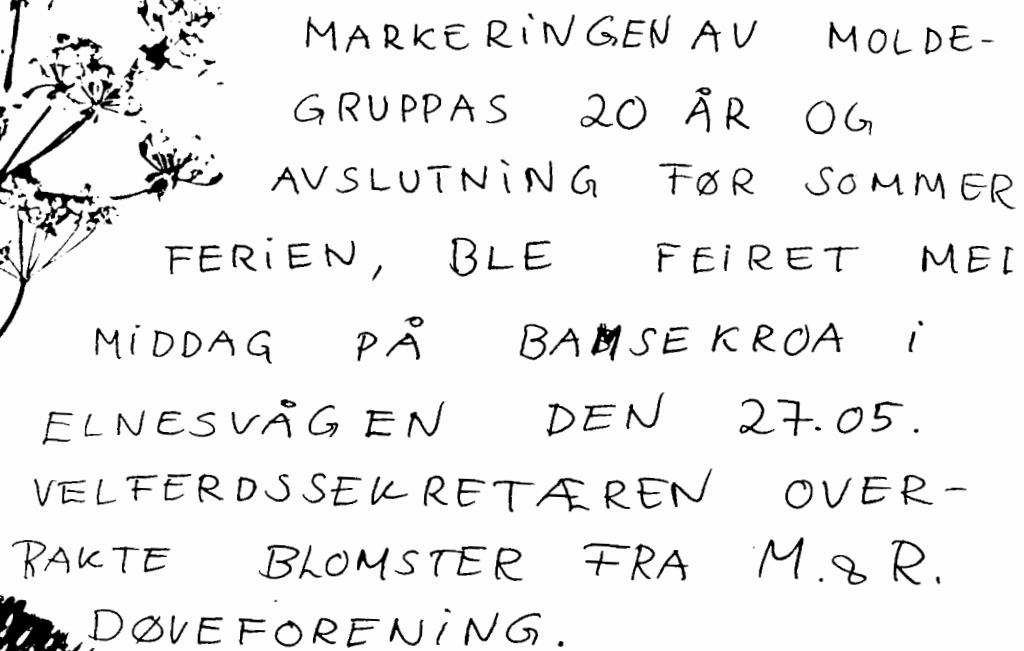 MARKERINGEN AV MOLDE-
GRUPPAS 20 ÅR OG
AVSLUTNING FØR SOMMER
FERIEN, BLE FEIRET MED
MIDDAG PÅ BAMSEKROA i
ELNESVÅGEN DEN 27.05.
VELFERDSSEKRETÆREN OVER-
RAKTE BLOMSTER FRA M.& R.
DØVEFORENING.